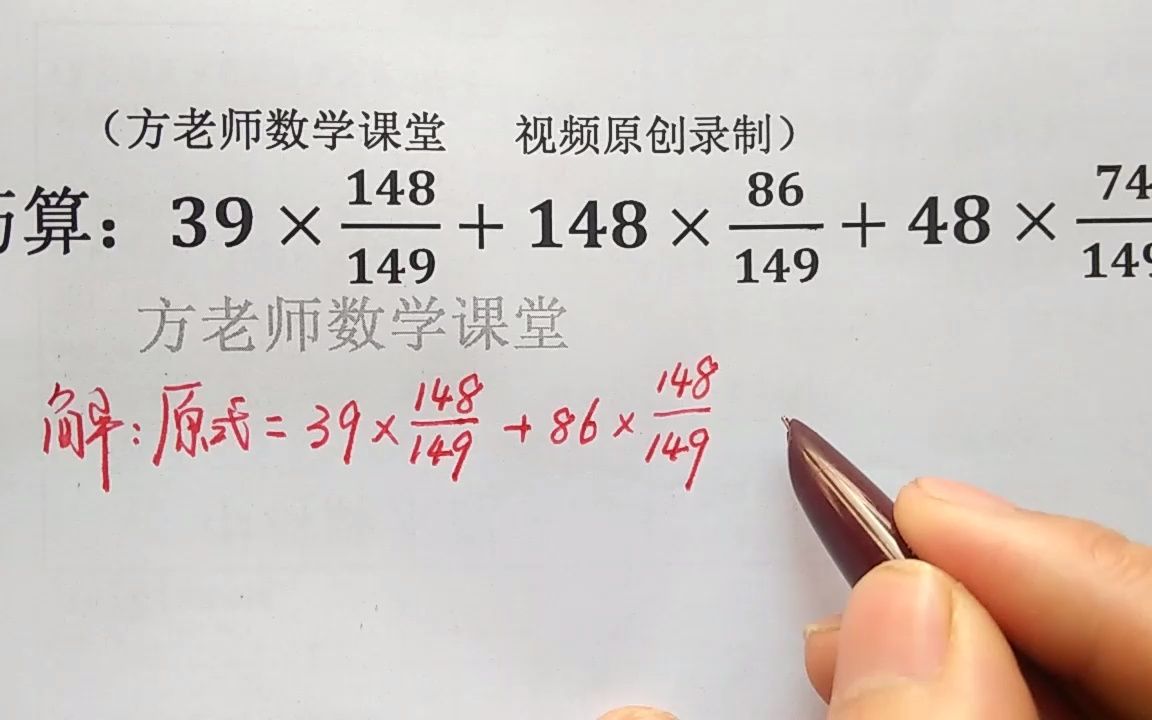 （方老师数学课堂 视频原创录制）
算：39 × 148/149 + 148 × 86/149 + 48 × 74/149
方老师数学课堂
解：原式 = 39 × 148/149 + 86 × 148/149